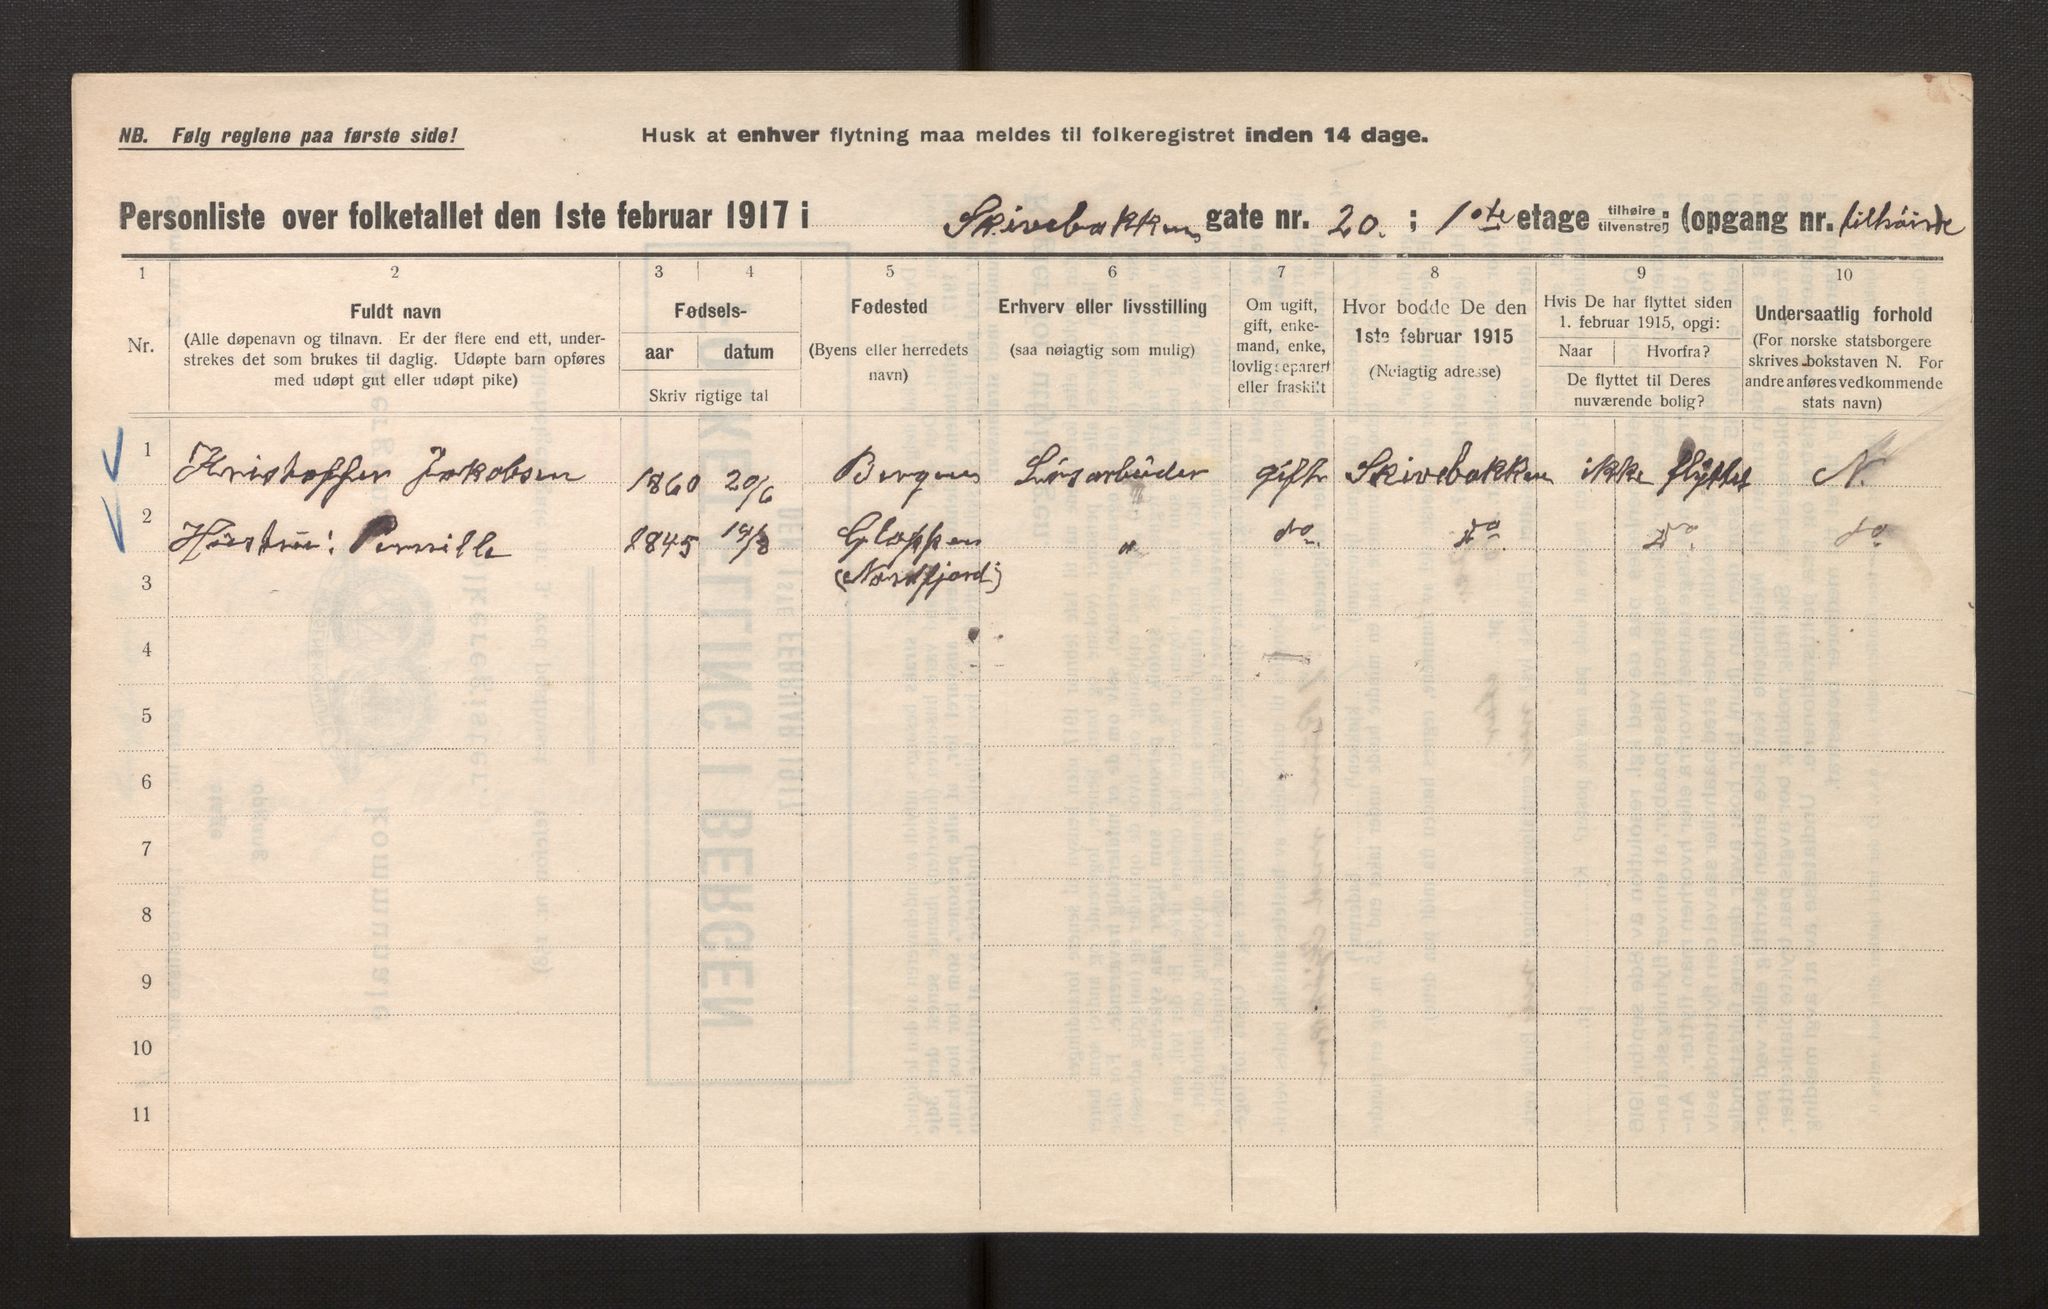 NB. Følg reglene paa første side!
Husk at enhver flytning maa meldes til folkeregistret inden 14 dage.
Personliste over folketallet den 1ste februar 1917 i Skivebakken gate nr. 20. ; 1ste etage tilhøire tilvenstre ; (opgang nr. tilhöire
1 2 3 4 5 6 7 8 9 10
Nr.
Fuldt navn
(Alle døpenavn og tilnavn. Er der flere end ett, under-
strekes det som brukes til daglig. Udøpte barn opføres
med udøpt gut eller udøpt pike)
Fødsels-
aar datum
Skriv rigtige tal
Fødested
(Byens eller herredets
navn)
Erhverv eller livsstilling
(saa nøiagtig som mulig)
Om ugift,
gift, enke-
mand, enke,
lovlig separert
eller fraskilt
Hvor bodde De den
1ste februar 1915
(Nøiagtig adresse)
Hvis De har flyttet siden
1. februar 1915, opgi:
Naar Hvorfra?
De flyttet til Deres
nuværende bolig?
Undersaatlig forhold
(For norske statsborgere
skrives bokstaven N. For
andre anføres vedkommende
stats navn)
1 Kristoffer Jakobsen 1860 20/6 Bergen gift Skivebakken ikke flyttet N.
2 Hüstrü: Pernille 1845 Gloppen " do do. do. do
3 (Nordfjord)
4
5
6
7
8
9
10
11